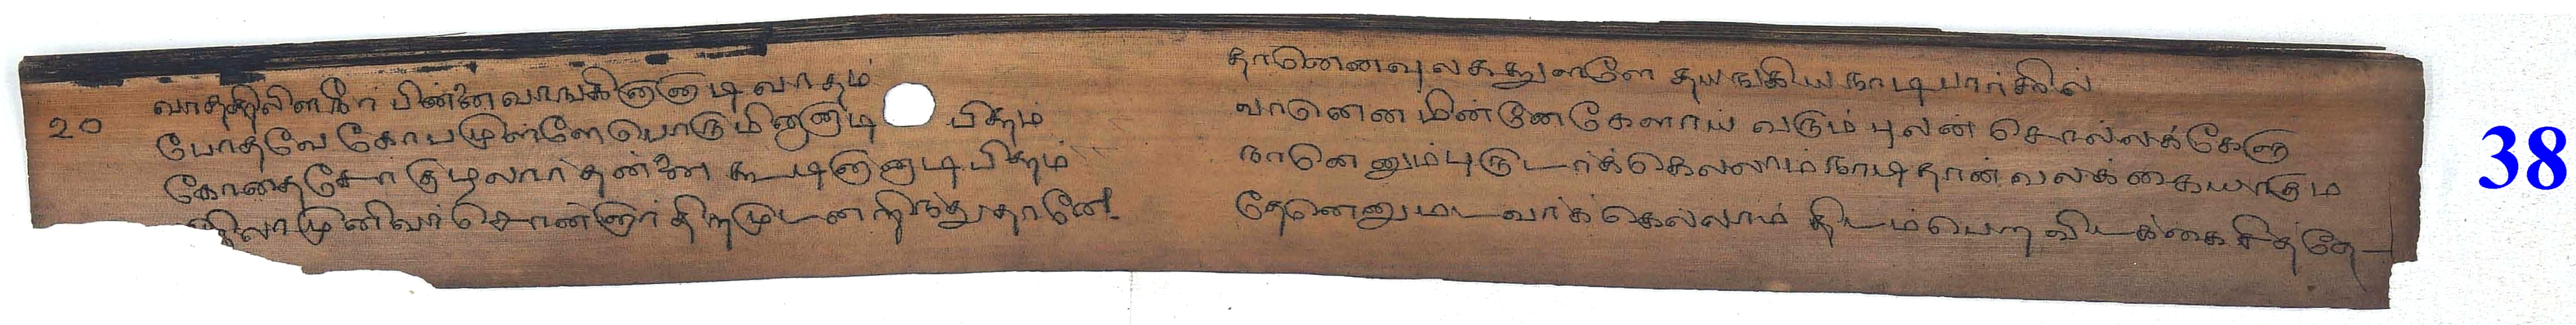 20
வாதத்திலிளநீர் பின்னைவாங்கினுடி வாதம்
போதவே கோபமுள்ளே பொருமினுடி பித்தம்
கோதைசேர் குழலார் தன்னை கூடினுடி பித்தம்
முனிவர் சொன்னார் திறமுடனறிந்துதானே
தானெனவுலகத்துளளே தயங்கிய நாடிபார்கில்
வானென மின்னேகேளாய் வரும் புலன் சொல்லக்கேளு
நானெனும் புருடர்க்கெலலாம் நாடிதான் வலக்கையாகும
தேனெனுமடவார்க்கெல்லாம் திடம்பெற விடக்கை சித்தே
38